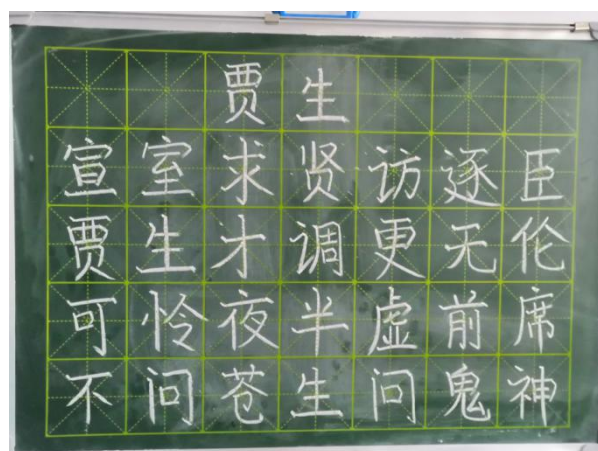 贾生
宣室求贤访逐臣
贾生才调更无伦
可怜夜半虚前席
不问苍生问鬼神